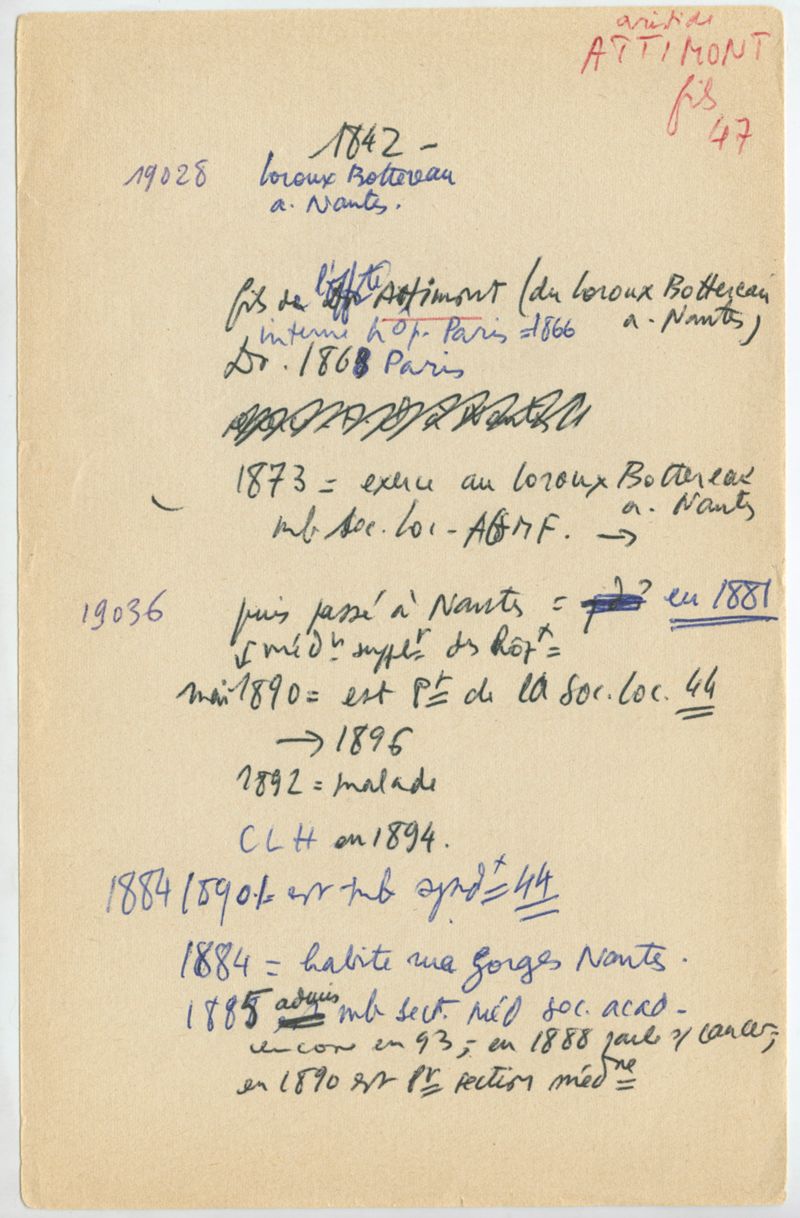 aristide
ATTIMONT
fils
47
1842 -
19028 loroux Bottereau
a. Nantes.
fils de Attimont (du loroux Bottereau
a. Nantes)
interne hôp. Paris = 1866
Dr. 1868 Paris
1873 = exerce au loroux Bottereau
a. Nantes
mb soc. loc - AGMF. →
19036 puis passé à Nantes = en 1881
méd suppl des hôpx =
mai 1890 = est Pt de la soc. loc. 44
→ 1896
1892 = malade
CLH en 1894.
1884 1890 = est mb synd 44
1884 = habite rue Gorges Nantes.
1885 admis mb sect. méd soc. acad -
encore en 93, - en 1888 parle s/ cancer,
en 1890 est Pt section médne